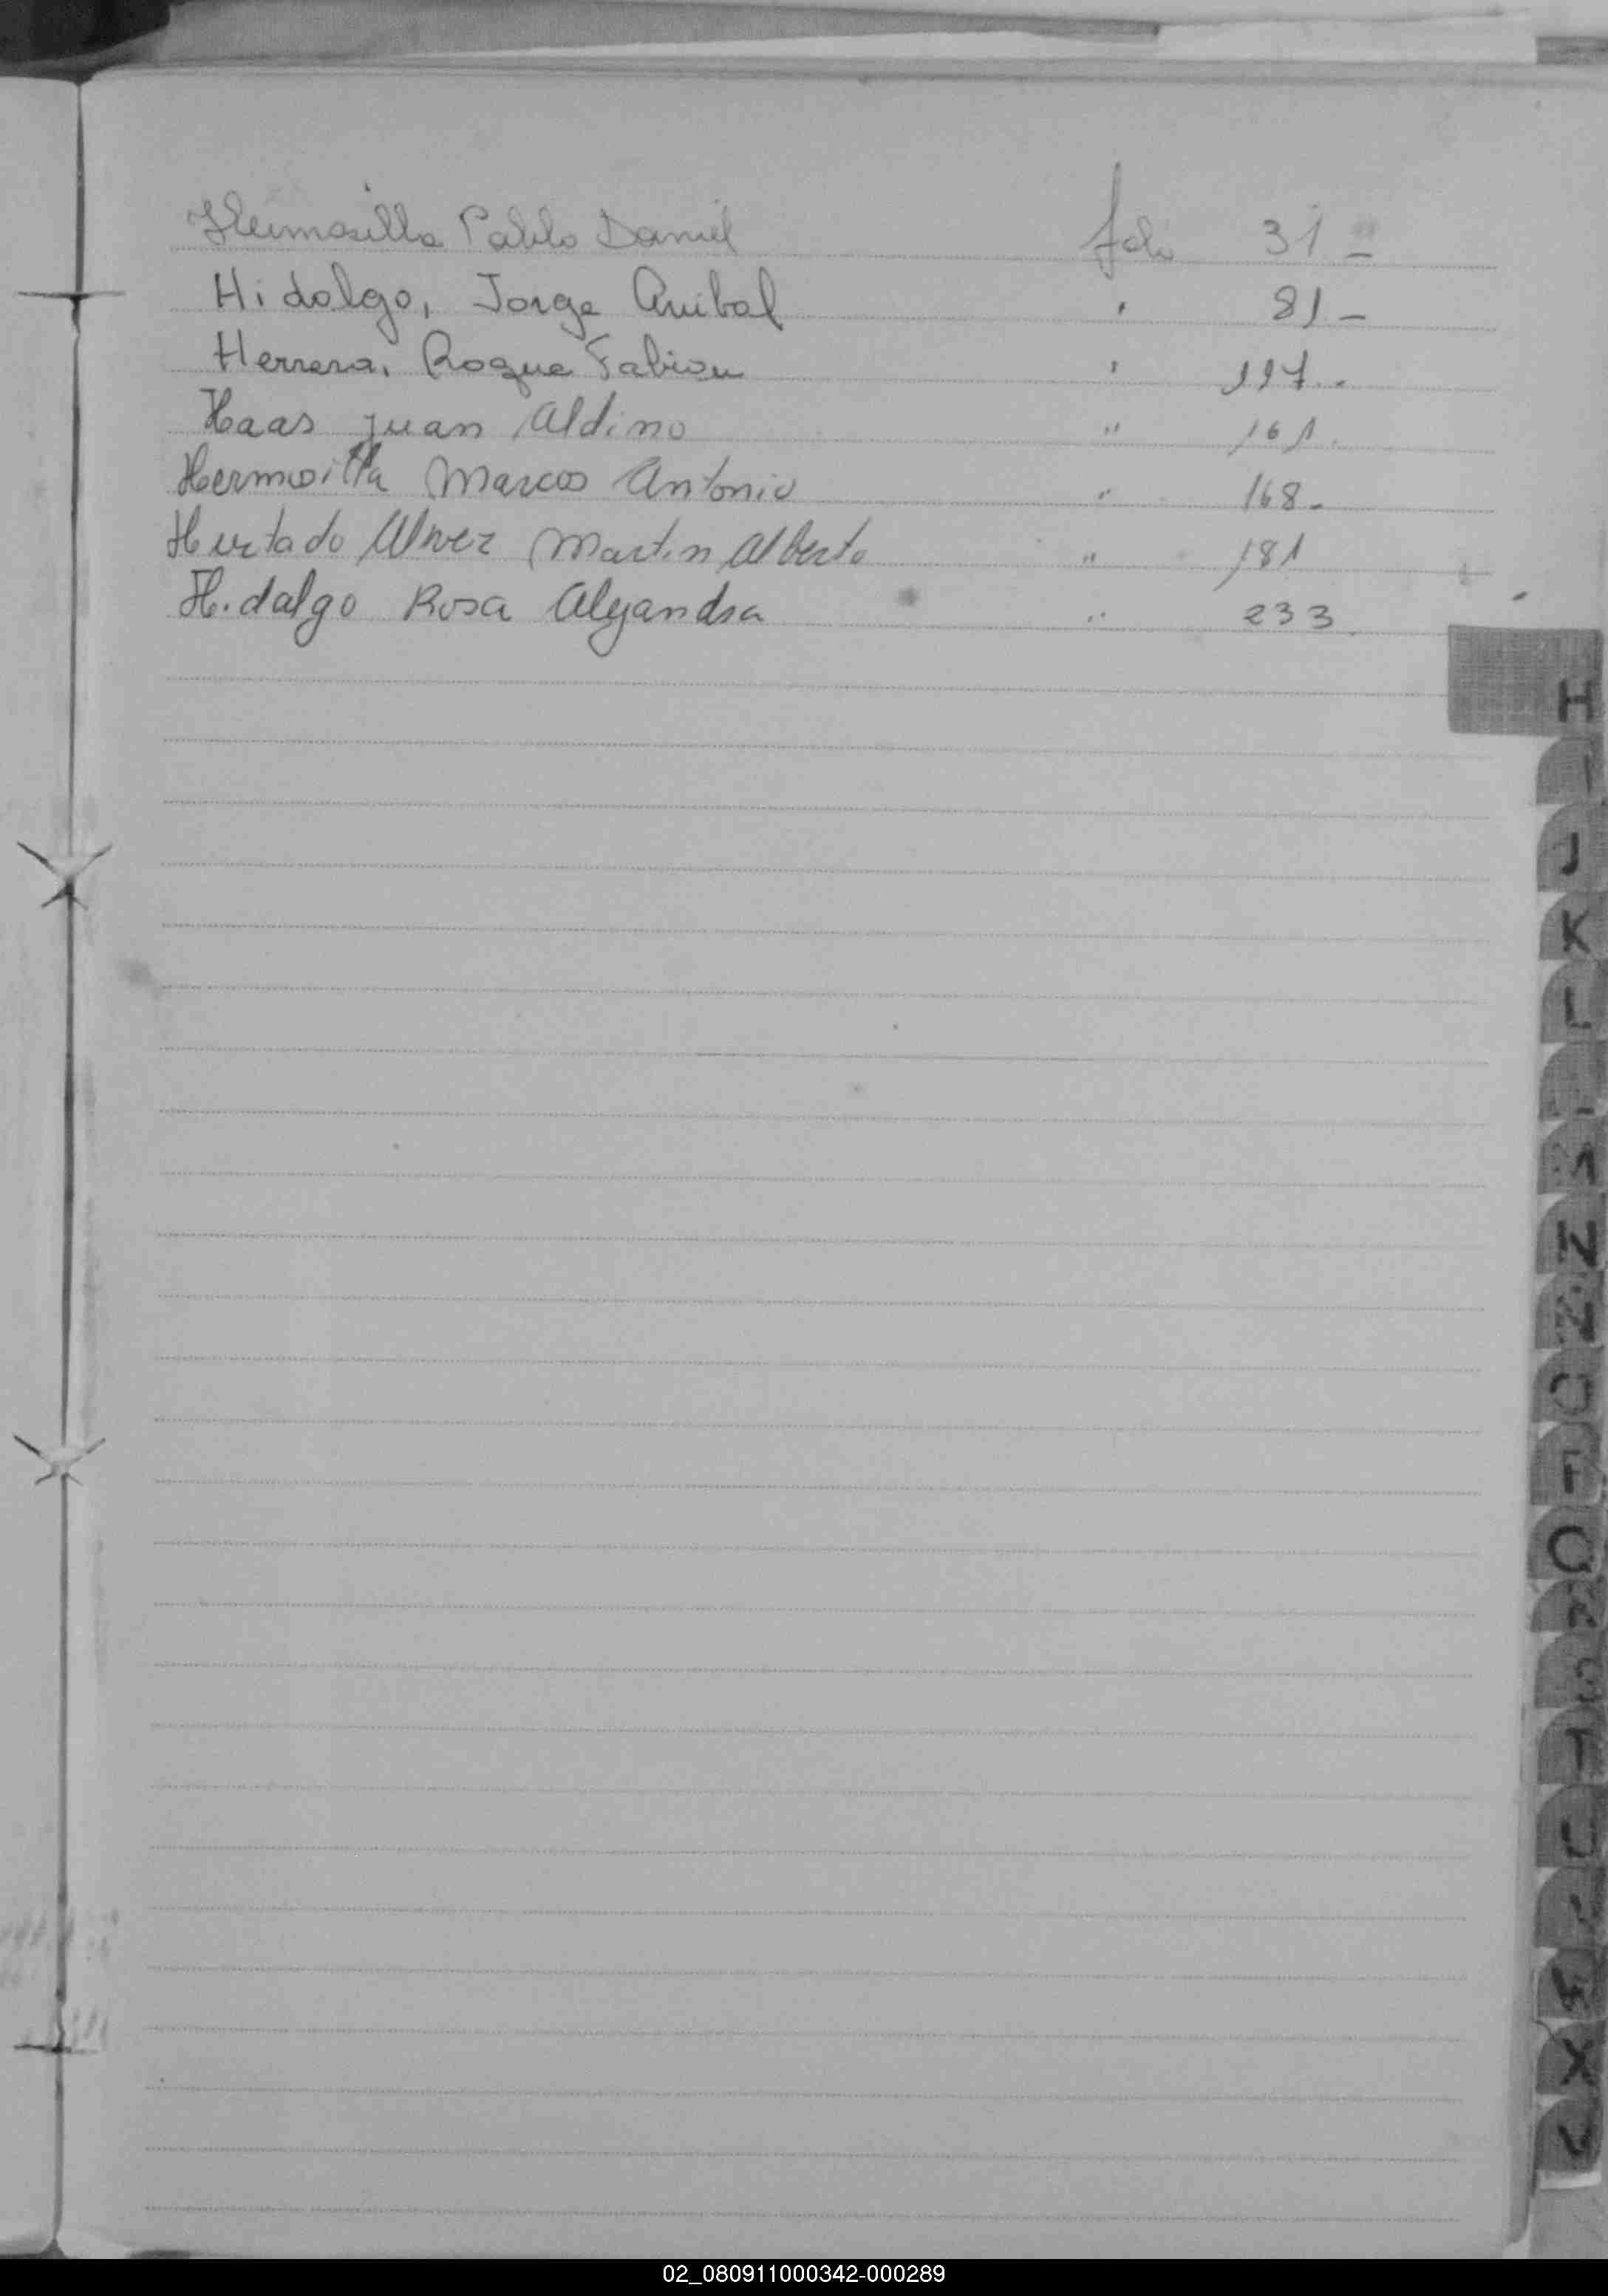 Hermosilla Pablo Daniel folio 31 -
Hidalgo, Jorge Anibal " 81 -
Herrera, Roque Fabian " 117 .
Haas Juan Aldino " 161 .
Hermosilla Marcos Antonio " 168 -
Hurtado Martin Alberto " 181
Hidalgo Rosa Alejandra " 233
H
J
K
L
N
Q
T
U
X
02_080911000342-000289